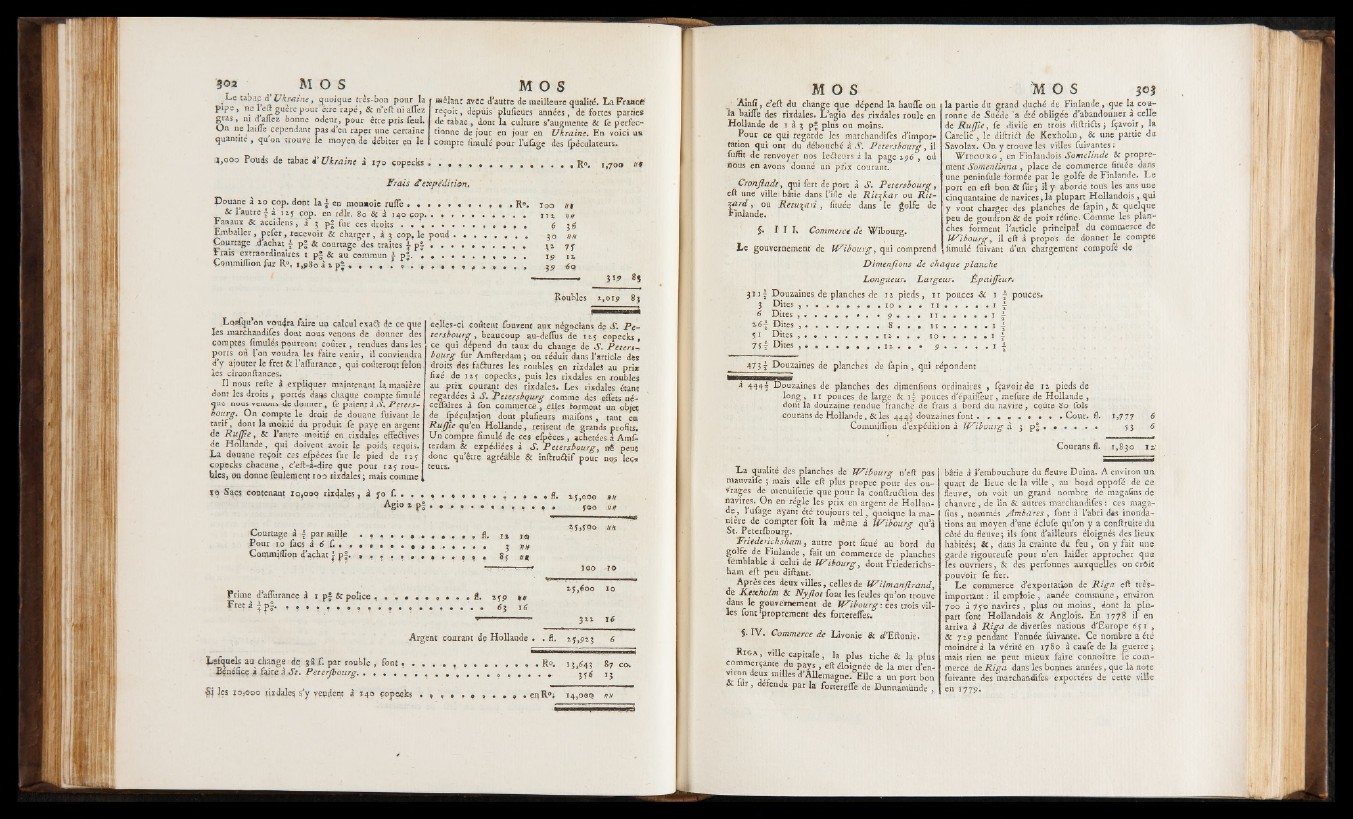 302 M O S
M O S
Le tabac d'Ukraine, quoique très-bon pour la
pipe, ne l'est guère pour être rapé, & n'est ni assez
gras, ni d'assez bonne odeur, pour être pris seul.
On ne laisse cependant pas d'en raper une certaine
quantité, qu'on trouve le moyen de débiter en le
mêlant avec d'autre de meilleure qualité. La France
reçoit, depuis plusieurs années, de fortes parties
de tabac, dont la culture s'augmente & se perfec-
tionne de jour en jour en Ukraine. En voici un
compte simulé pour l'usage des spéculateurs.
1,000 Pouds de tabac d'Ukraine à 170 copecks . . . . . . . . . . . . . . . R°. 1,700 "
Frais d'expédition.
Douane à 20 cop. dont la ½ en monnoie russe . . . . . . . . . . R°. 100 "
& l'autre ½ à 125 cop. en rdlr. 80 & à 140 cop. . . . . . . . . . 112 "
Fanaux & accidens, à 3 p% sur ces droits . . . . . . . . . . . 6 36
Emballer, peser, recevoir & charger, à 3 cop. le poud . . . . . . . 30 "
Courtage d'achat ½ p% & courtage des traites ½ p% . . . . . . . . 32 75
Frais extraordinaires 1 p% & au commun ½ p% . . . . . . . . . . 19 12
Commission sur R°. 1,980 à 2 p% . . . . . . . . . . . . . . 39 60
319 83
Roubles 2,019 83
Lorsqu'on voudra faire un calcul exact de ce que
les marchandises dont nous venons de donner des
comptes simulés pourront coûter, rendues dans les
ports où l'on voudra les faire venir, il conviendra
d'y ajouter le fret & l'assurance, qui coûteront selon
les circonstances.
Il nous reste à expliquer maintenant la manière
dont les droits, portés dans chaque compte simulé
que nous venons de donner, se paient à S. Peters-
bourg. On compte le droit de douane suivant le
tarif, dont la moitié du produit se paye en argent
de Russie, & l'autre moitié en rixdales effectives
de Hollande, qui doivent avoir le poids requis.
La douane reçoit ces espèces sur le pied de 125
copecks chacune, c'est-à-dire que pour 125 rou-
bles, on donne seulement 100 rixdales; mais comme
celles-ci coûtent souvent aux négocians de S. Pe-
tersbourg, beaucoup au-dessus de 125 copecks,
ce qui dépend du taux du change de S. Peters-
bourg sur Amsterdam; on réduit dans l'article des
droits des factures les roubles en rixdales au prix
fixé de 125 copecks, puis les rixdales en roubles
au prix courant des rixdales. Les rixdales étant
regardées à S. Petersbourg comme des effets né-
cessaires à son commerce, elles forment un objet
de spéculation dont plusieurs maisons, tant en
Russie qu'en Hollande, retirent de grands profits.
Un compte simulé de ces espèces, achetées à Ams-
terdam & expédiées à S. Petersbourg, ne peut
donc qu'être agréable & instructif pour nos lec-
teurs.
10 Sacs contenant 10,000 rixdales, à 50 s. . . . . . . . . . . . . . fl. 25,000 "
Agio 2 p% . . . . . . . . . . . . . 500 "
25,500 "
Courtage à ½ par mille . . . . . . . . . . . fl. 12 10
Pour 10 sacs à 6 s. . . . . . . . . . . . . . 3 "
Commission d'achat ⅓ p% . . . . . . . . . . . . 85 "
100 10
25,600 10
Prime d'assurance à 1 p% & police . . . . . . . . . fl. 259 "
Fret à ¼ p% . . . . . . . . . . . . . . . . . 63 16
322 16
Argent courant de Hollande . . fl. 25,923 6
Lesquels au change de 38 s. par rouble, font . . . . . . . . . . R°. 13,643 87 co.
Bénéfice à faire à St. Petersbourg . . . . . . . . . . . . . . . 356 13
Si les 10,000 rixdales s'y vendent à 140 copecks . . . . . . . . . . en R°. 14,000 "
M O S
M O S 303
Ainsi, c'est du change que dépend la hausse ou
la baisse des rixdales. L'agio des rixdales roule en
Hollande de 1 à 3 p% plus ou moins.
Pour ce qui regarde les marchandises d'impor-
tation qui ont du débouché à S. Petersbourg, il
suffit de renvoyer nos lecteurs à la page 296, où
nous en avons donné un prix courant.
Cronstade, qui sert de port à S. Petersbourg,
est une ville bâtie dans l'isle de Ritzkar ou Rit-
zard, ou Retuzari, située dans le golfe de
Finlande.
§. I I I. Commerce de Wibourg.
Le gouvernement de Wibourg, qui comprend
la partie du grand duché de Finlande, que la cou-
ronne de Suède a été obligée d'abandonner à celle
de Russie, se divise en trois districts; sçavoir, la
Carelie, le district de Kexholm, & une partie du
Savolax. On y trouve les villes suivantes:
WIBOURG, en Finlandois Somelinde & propre-
ment Somenlinna, place de commerce située dans
une peninsule formée par le golfe de Finlande. Le
port en est bon & sûr; il y aborde tous les ans une
cinquantaine de navires, la plupart Hollandois, qui
y vont charger des planches de sapin, & quelque
peu de goudron & de poix résine. Comme les plan-
ches forment l'article principal du commerce de
Wibourg, il est à propos de donner le compte
simulé suivant d'un chargement composé de
Dimensions de chaque planche
Longueur. Largeur. Épaisseur.
311½ Douzaines de planches de 12 pieds, 11 pouces & 1 ½ pouces.
3 Dites, . . . . . . . . . 10 . . . 11 . . . . . 1 ½
6 Dites, . . . . . . . . . 9 . . . 11 . . . . . 1 ½
26½ Dites, . . . . . . . . 8 . . . 11 . . . . . 1 ½
51 Dites, . . . . . . . . . 12 . . . 10 . . . . . 1 ½
75½ Dites, . . . . . . . . 12 . . . 9 . . . . . 1 ½
473½ Douzaines de planches de sapin, qui répondent
à 444½ Douzaines de planches des dimensions ordinaires, sçavoir de 12 pieds de
long, 11 pouces de large & 1½ pouces d'épaisseur, mesure de Hollande,
dont la douzaine rendue franche de frais à bord du navire, coûte 80 sols
courans de Hollande, & les 444½ douzaines font . . . . . . . . Cour. fl. 1,777 6
Commission d'expédition à Wibourg à 3 p% . . . . . . 53 6
Courans fl. 1,830 12
La qualité des planches de Wibourg n'est pas
mauvaise; mais elle est plus propre pour des ou-
vrages de menuiserie que pour la construction des
navires. On en règle les prix en argent de Hollan-
de, l'usage ayant été toujours tel, quoique la ma-
nière de compter soit la même à Wibourg qu'à
St. Petersbourg.
Friederichsham, autre port situé au bord du
golfe de Finlande, fait un commerce de planches
semblable à celui de Wibourg, dont Friederichs-
ham est peu distant.
Après ces deux villes, celles de Wilmanstrand,
de Kexholm & Nyslot sont les seules qu'on trouve
dans le gouvernement de Wibourg: ces trois vil-
les sont proprement des forteresses.
§. IV. Commerce de Livonie & d'Estonie.
RIGA, ville capitale, la plus riche & la plus
commerçante du pays, est éloignée de la mer d'en-
viron deux milles d'Allemagne. Elle a un port bon
& sûr, défendu par la forteresse de Dunnamunde,
bâtie à l'embouchure du fleuve Duina. A environ un
quart de lieue de la ville, au bord opposé de ce
fleuve, on voit un grand nombre de magasins de
chanvre, de lin & autres marchandises: ces maga-
sins, nommés Ambares, sont à l'abri des inonda-
tions au moyen d'une écluse qu'on y a construite du
côté du fleuve; ils sont d'ailleurs éloignés des lieux
habités; &, dans la crainte du feu, on y fait une
garde rigoureuse pour n'en laisser approcher que
les ouvriers, & des personnes auxquelles on croit
pouvoir se fier.
Le commerce d'exportation de Riga est très-
important: il emploie, année commune, environ
700 à 750 navires, plus ou moins, dont la plu-
part sont Hollandois & Anglois. En 1778 il en
arriva à Riga de diverses nations d'Europe 651,
& 729 pendant l'année suivante. Ce nombre a été
moindre à la vérité en 1780 à cause de la guerre;
mais rien ne peut mieux faire connoître le com-
merce de Riga dans les bonnes années, que la note
suivante des marchandises exportées de cette ville
en 1779.